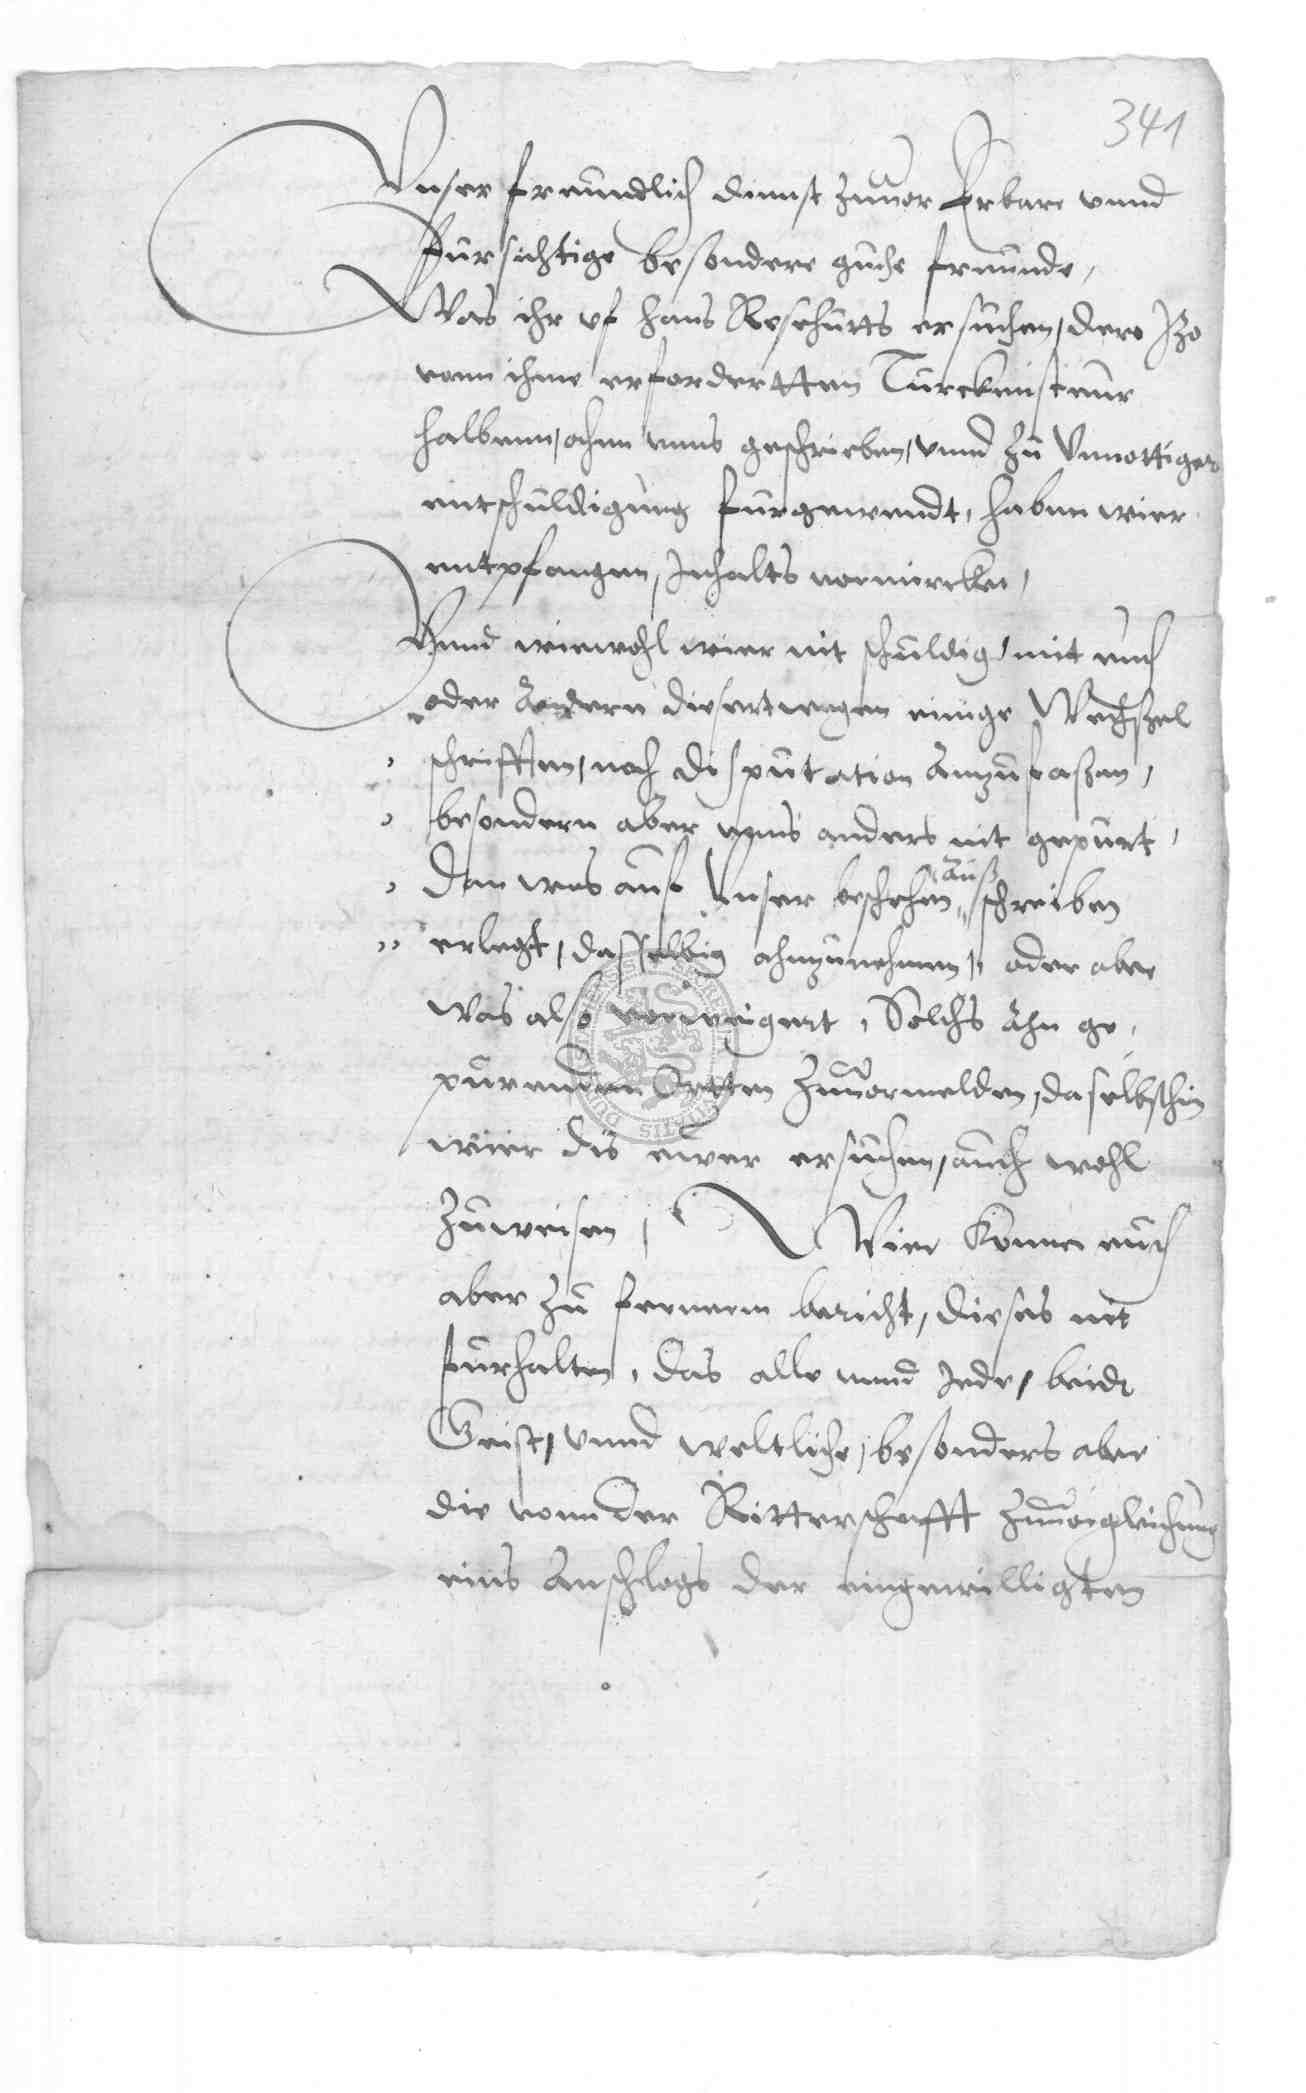 341
Vnser freundlich dinnst zuuor Erbare vnnd
fursichtige besondere gutte freunde,
Was ihr vf hans Reschutts ersuchen, dero Izo
vonn ihme erfordertten Turckensteuer
halbenn, ahnn vnns geschrieben, vnnd zu Vnnottiger
entschuldigung furgewendt, haben wier
entpfangen, Inhalts vermerckt,
Vnnd wiewohl wier nit schuldig, mit euch
oder Andern diesertwegen einige Wechszel
schrifften, noch disputation Anzufaszen,
besondern aber vnns anders nit gepurt,
Dan was auf Vnser beschehen
Ausz
schreiben
erlegt, dasselbig ahnzunehmen, oder aber
was also verweigert, Solchs Ahn ge,
purenden Ortten Zuuormelden, daselbsthin
wier dis ewer ersuchen, auch wohl
Zuweisen, Wier konnen euch
aber zu fernerm bericht, dieses nit
furhalten, das alle vnnd Jede, beide
Geist, vnnd weltliche, besonders aber
die vonn der Ritterschafft Zuuorgleichung
eins Anschlags der eingewilligten